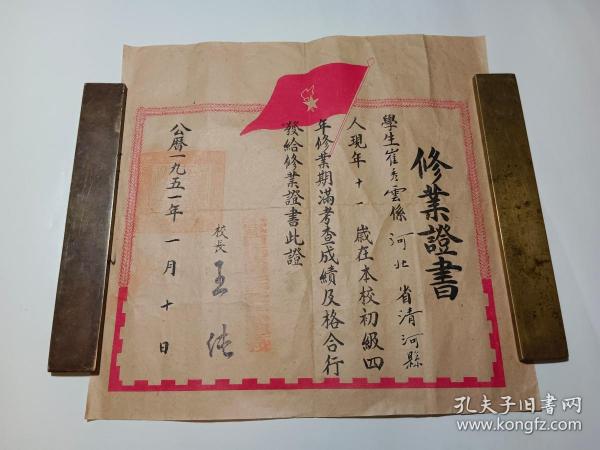 修業證書
學生崔秀雲係河北省清河縣
人現年十一歲在本校初級四
年修業期滿考查成績及格合行
發給修業證書此證
校長 王純
公曆一九五一年一月十日
孔夫子旧书网
www.kongfz.com